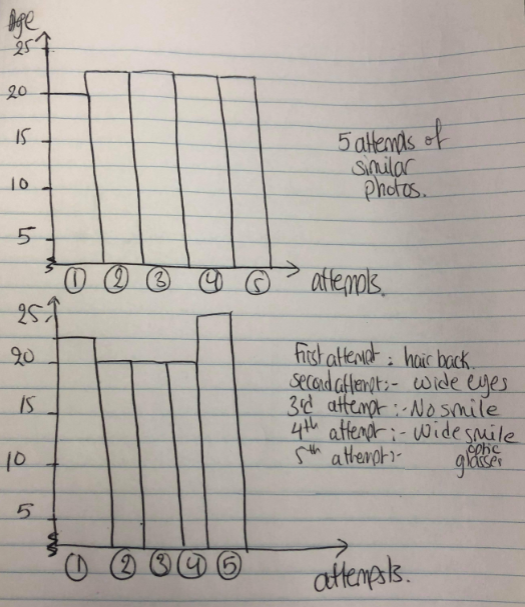 Age
25
20
15
10
5
① ② ③ ④ ⑤ attempts.
5 attempts of
similar
photos.
25
20
15
10
5
① ② ③ ④ ⑤
attempsts.
First attempt : hair back.
second attempt:- wide eyes
3rd attempt :- No smile
4th attempt :- Wide smile
5th attempt:- optic
glasser